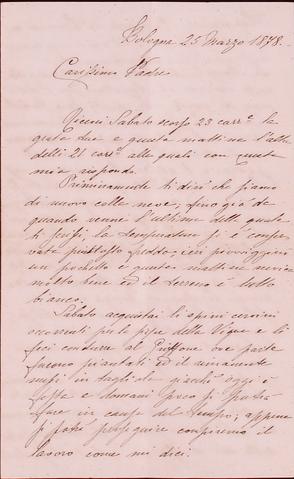 Bologna 25 Marzo 1878.
Carissimo Padre
Ricevei Sabato scorso 23 corr.e la
grata tua e questa mattina l'altra
delli 21 corr.e alle quali con questa
mia rispondo.
Primieramente ti dirò che siamo
di nuovo colla neve; fino già da
quando venne l'ultima della quale
ti scrissi la temperatura si è conser
vata piuttosto fredda; ieri piovviggini
un pochetto e questa mattina nevica
molto bene ed il terreno è tutto
bianco.
Sabato acquistai li spini
occorrenti per la siepe della Vigna e li
feci condurre al ove parte
furono piantati ed il rimanente
messi in tagliata giacchè oggi è
festa e domani poco si potrà
fare in causa del tempo; appena
si potrà proseguire compiremo il
lavoro come mi dici.